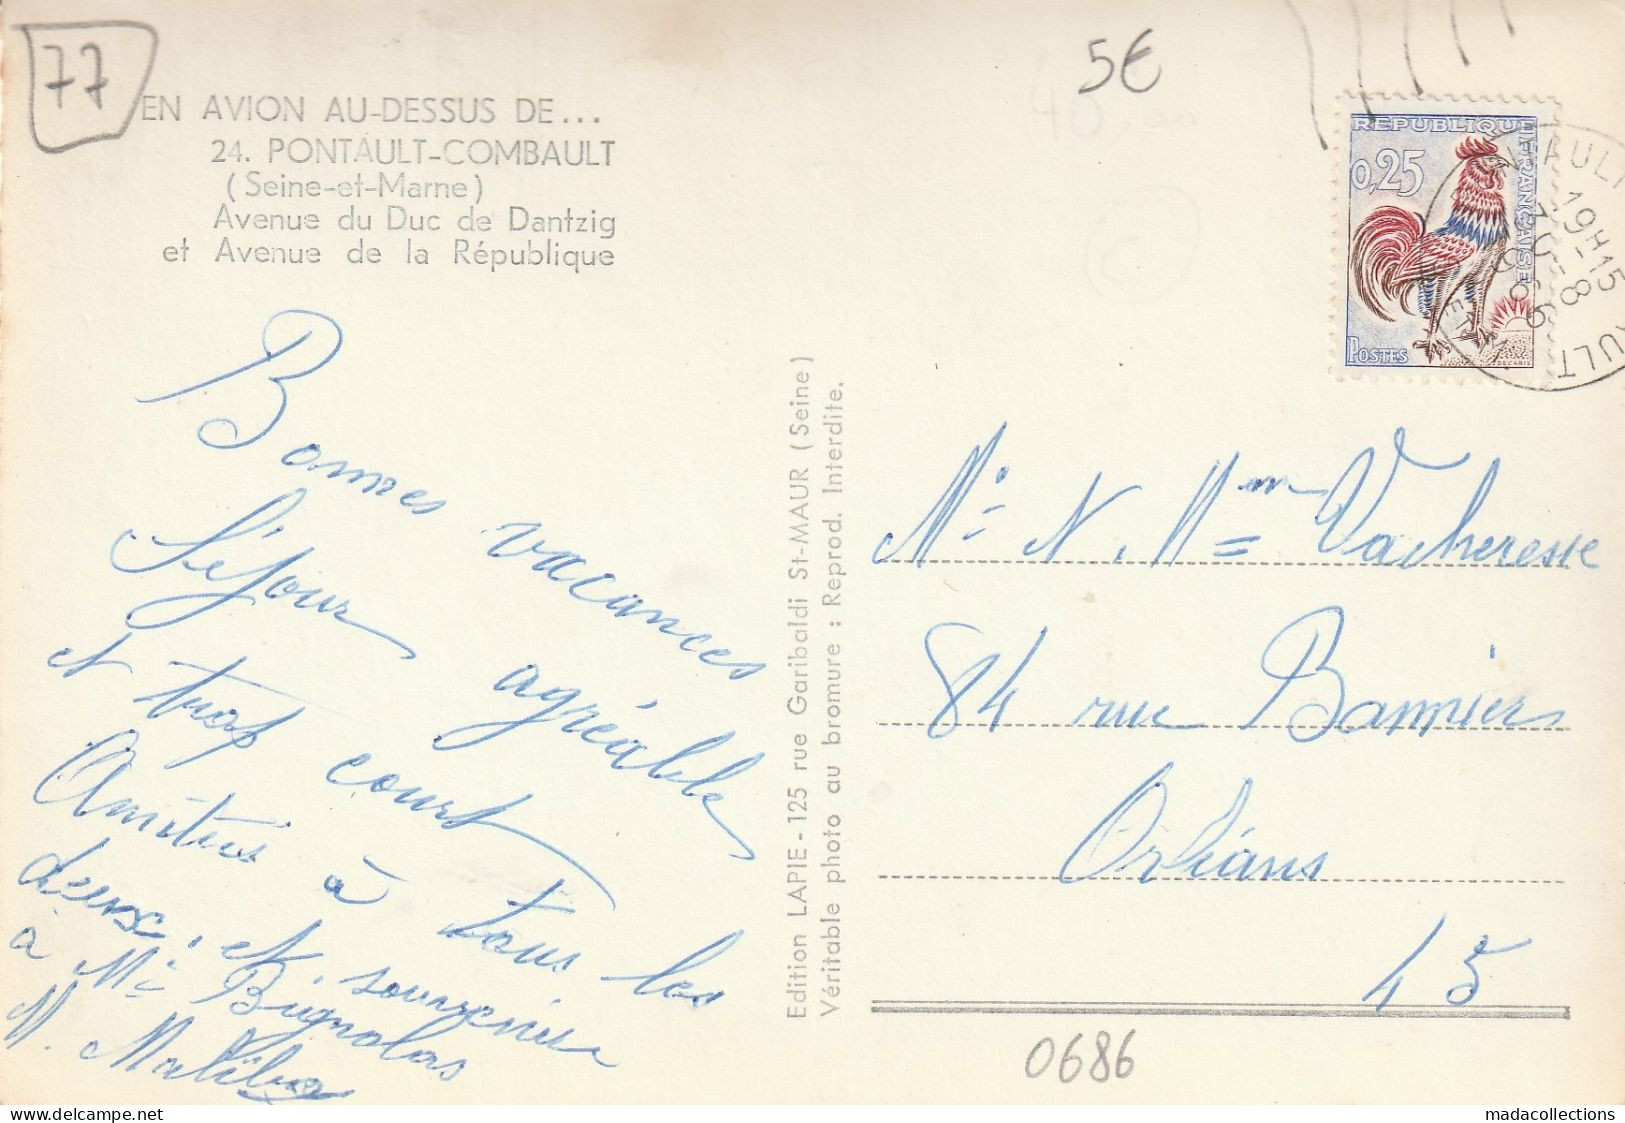 77
5€
EN AVION AU-DESSUS DE...
24. PONTAULT-COMBAULT
(Seine-et-Marne)
Avenue du Duc de Dantzig
et Avenue de la République
Bonnes vacances
Séjour agréable
et trop court
Amitiés à tous les
deux, et souvenir
à Mr Bignolas
M.
Edition LAPIE - 125 rue Garibaldi St-MAUR (Seine)
Véritable photo au bromure : Reprod. Interdite.
REPUBLIQUE FRANÇAISE
0,25
POSTES
DECARIS
19H15
-8
1966
Mr Mme Vacheresse
84 rue Bannier
Orléans
45
0686
madacollections